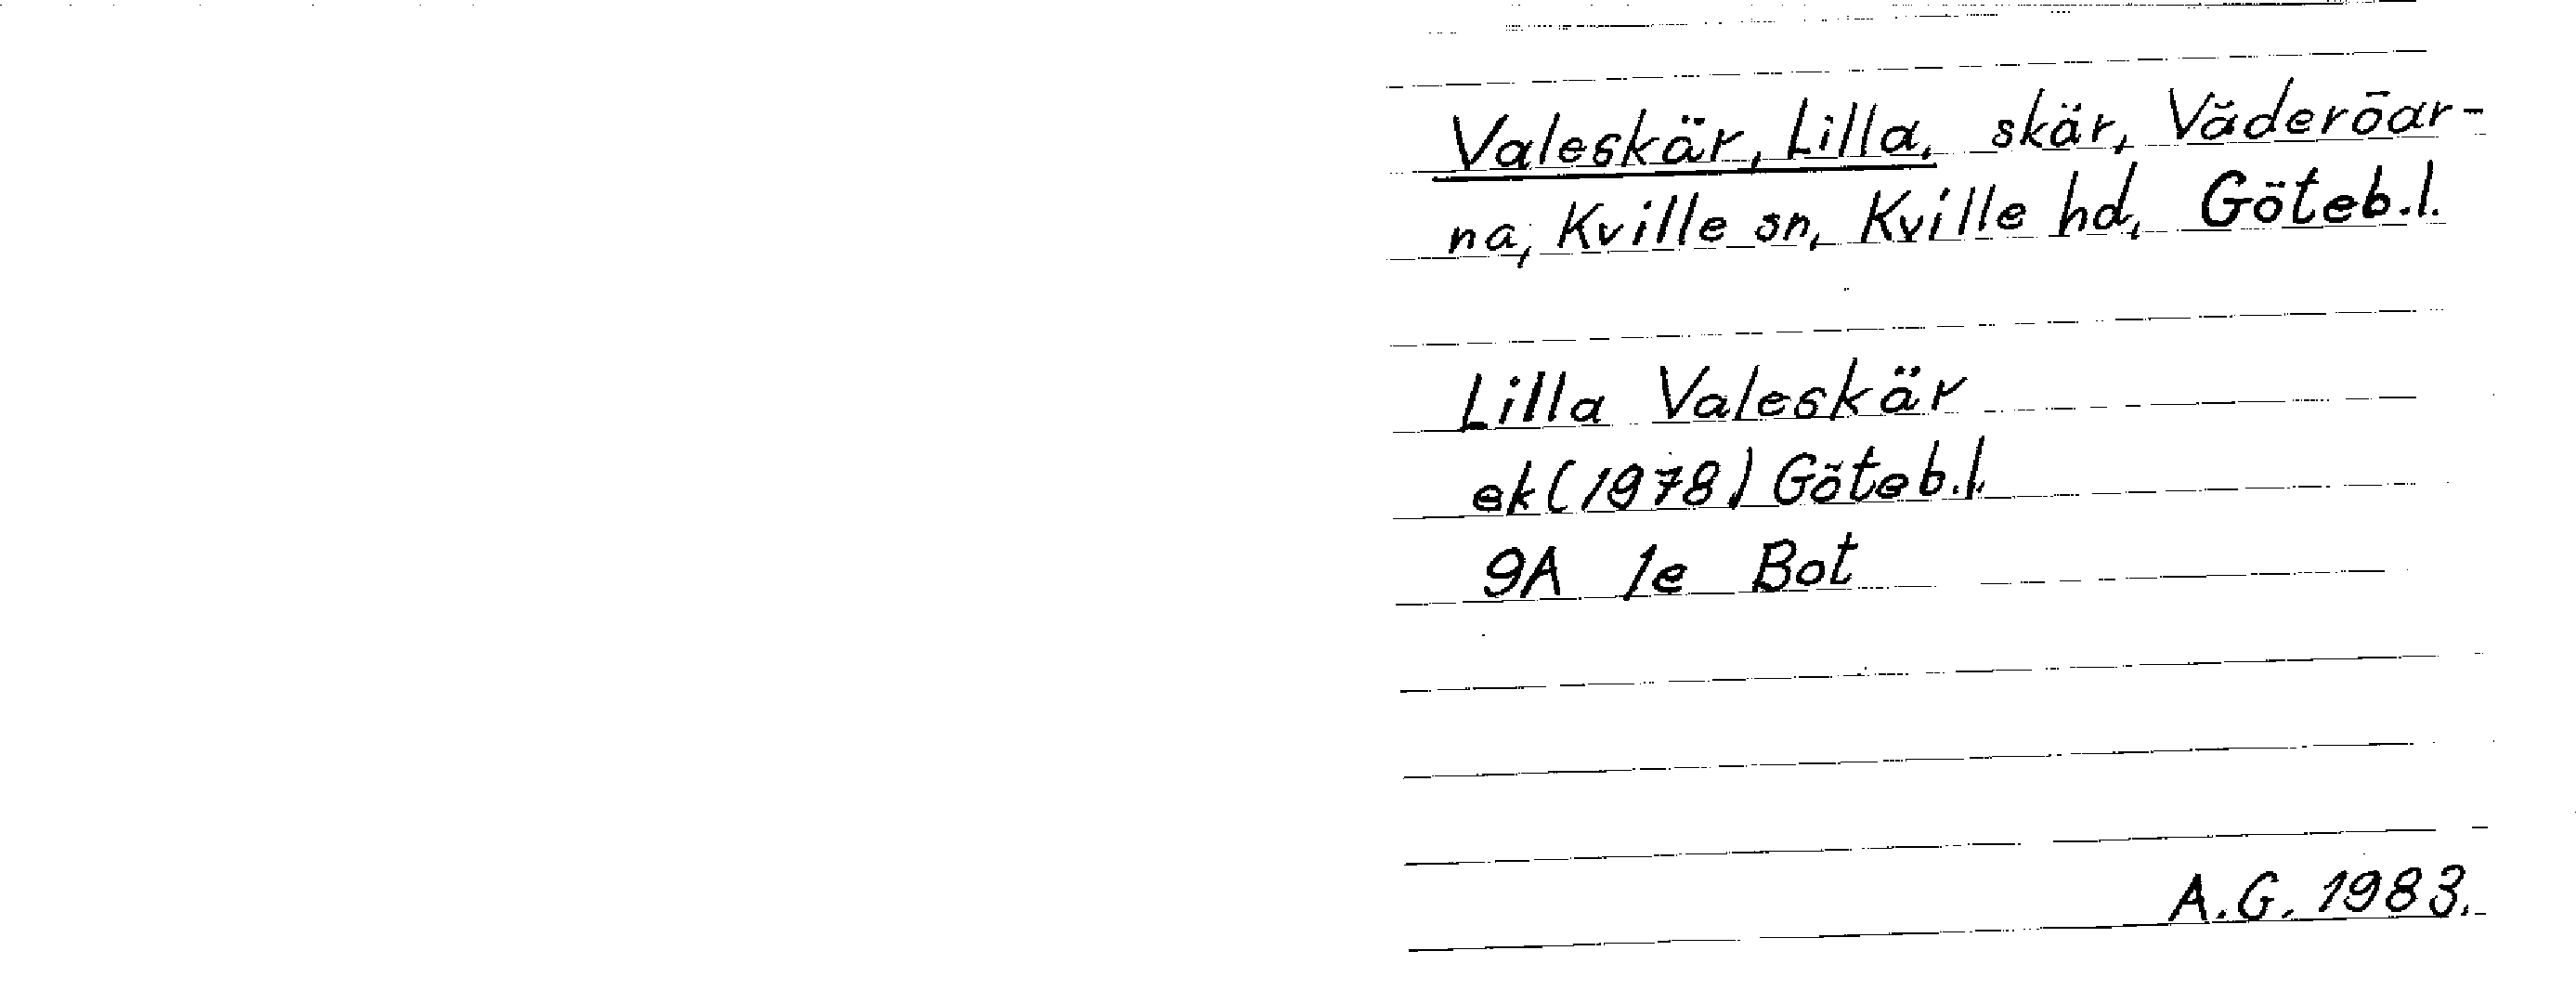 Valeskär, Lilla, skär, Väderöar-
na, Kville sn, Kville hd, Göteb.l.
Lilla Valeskär
ek (1978) Göteb.l.
9A 1e Bot
A.G. 1983.